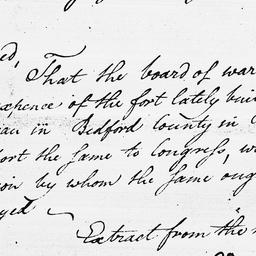 ed,
That the board of war
expence of the fort lately buil
in Bedford County in
ort the same to Congress, w
ion by whom the same oug
yed
Extract from the